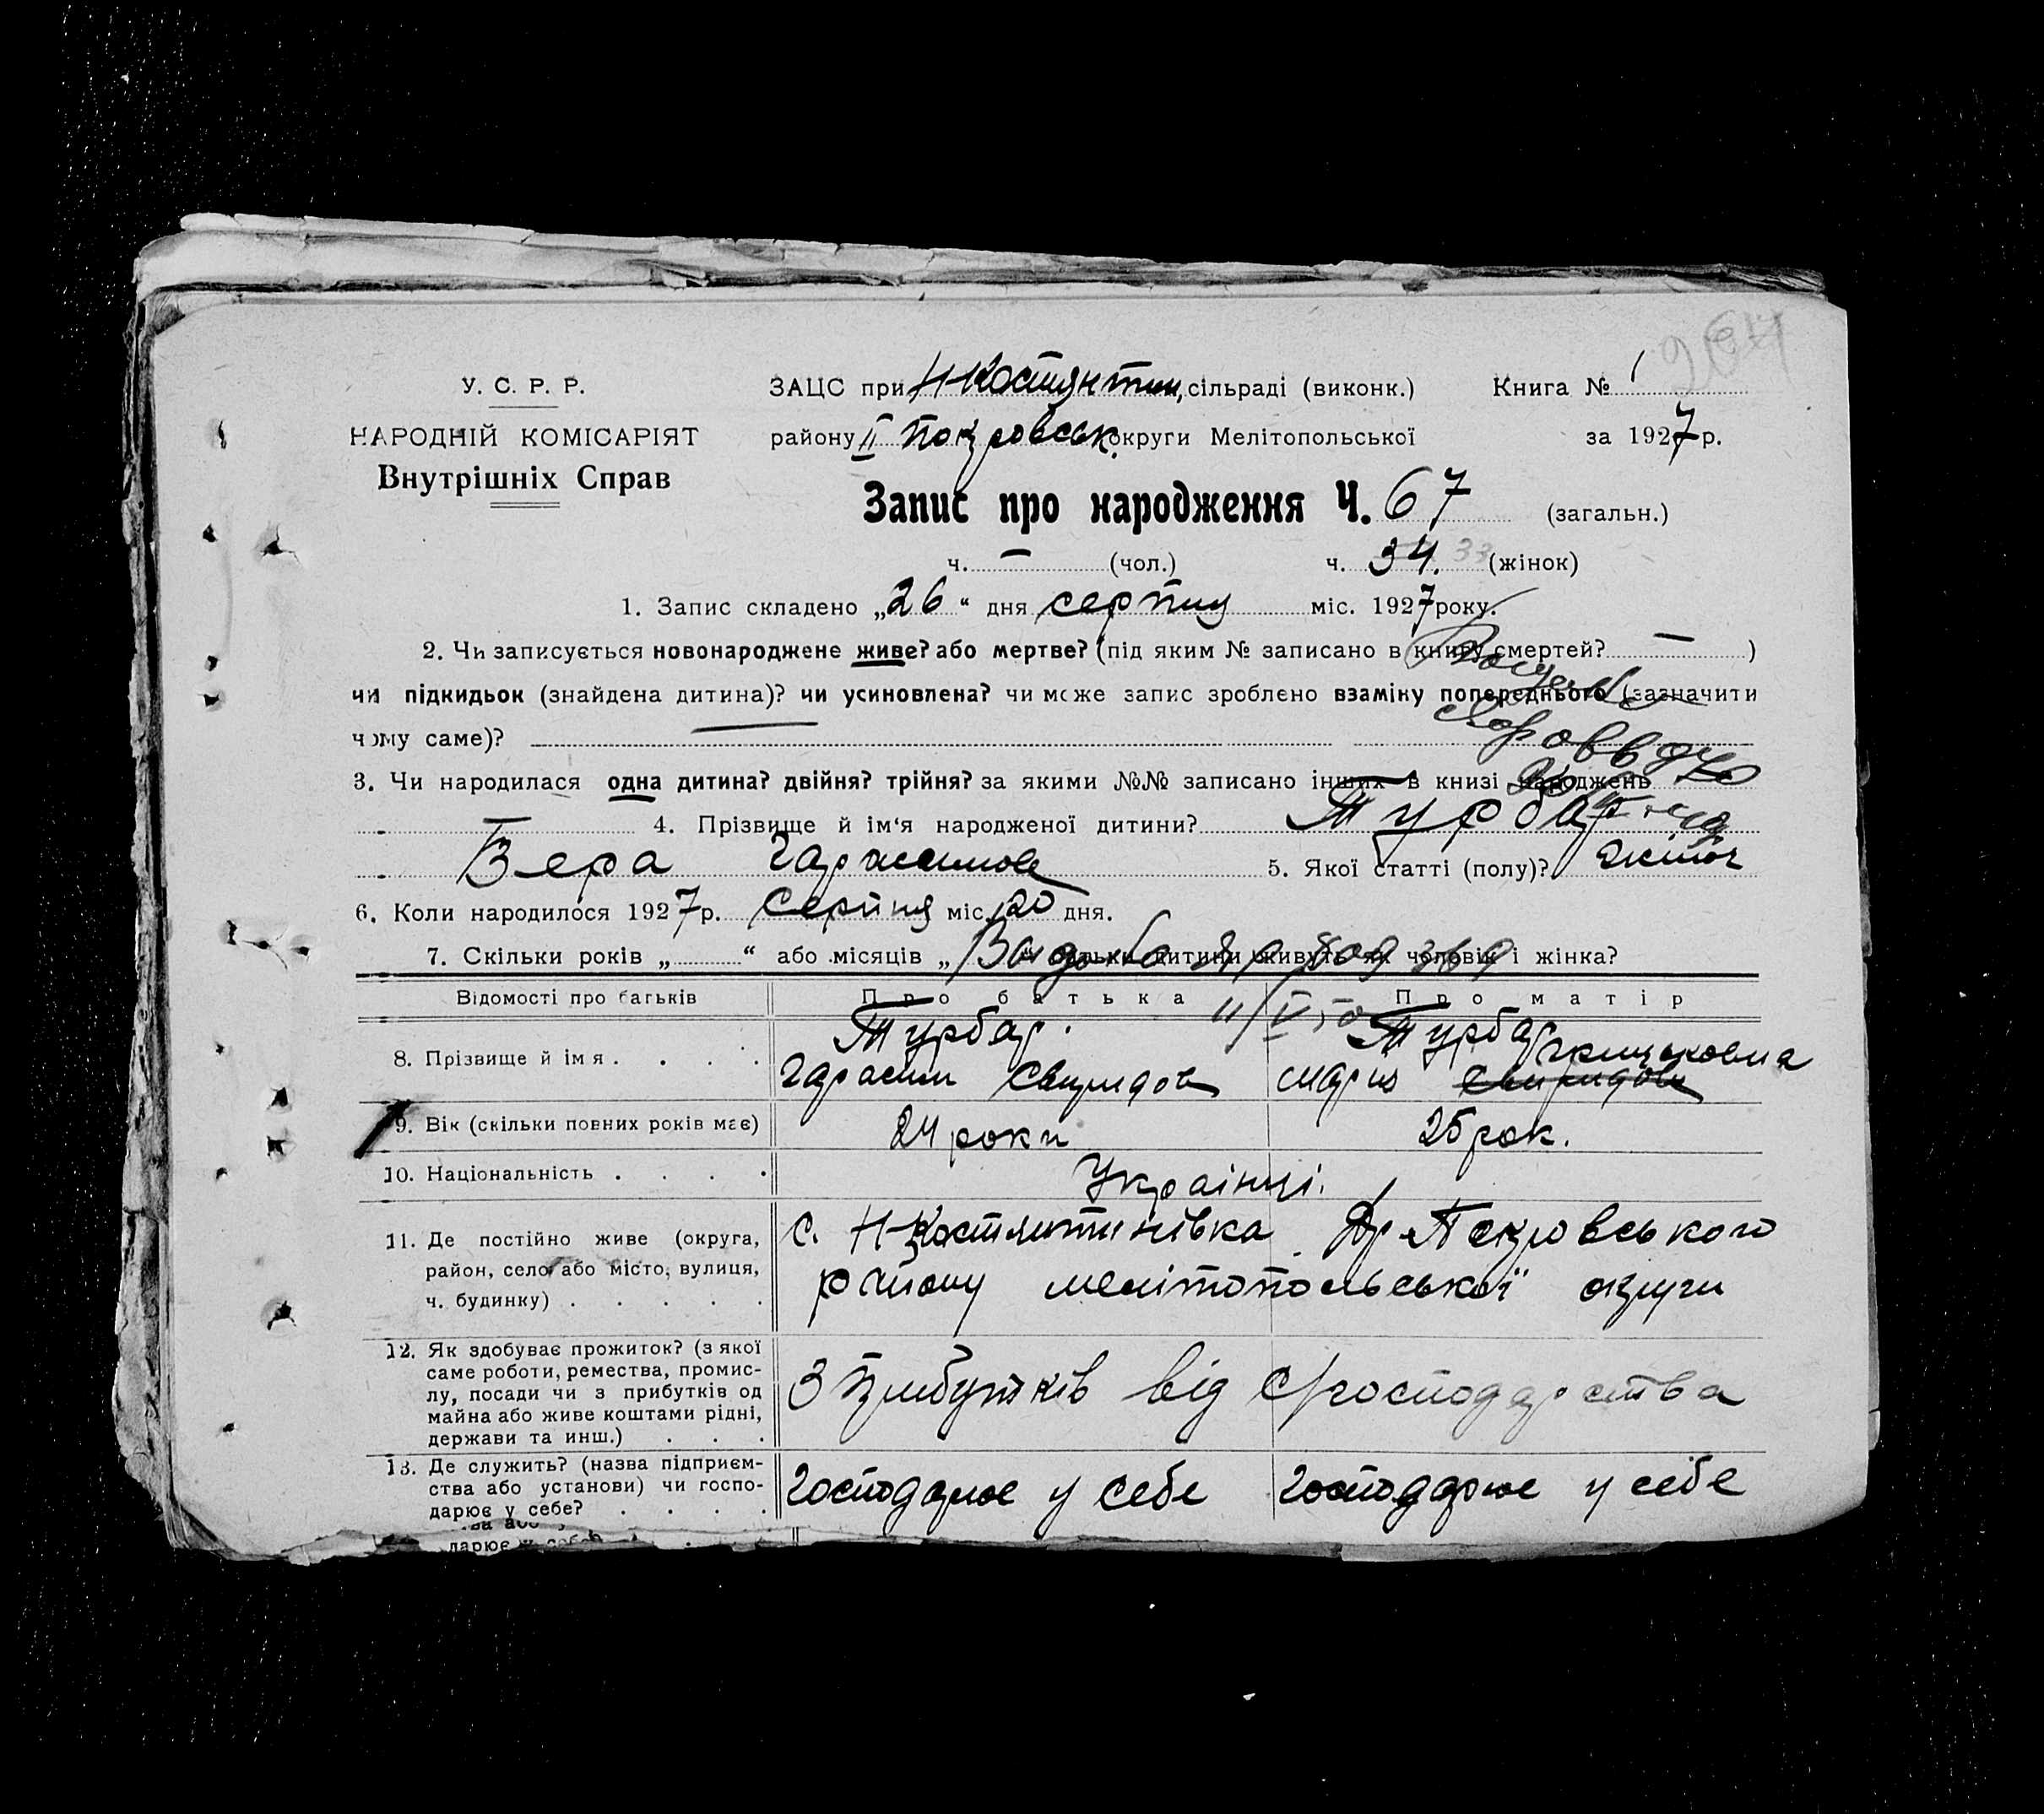 264
У. С. Р. Р.
НАРОДНІЙ КОМІСАРІЯТ
Внутрішніх Справ
ЗАЦС при Н-Костянтин, сільраді (виконк.) Книга № 1
району ІІ Покровськ. округи Мелітопольської за 1927 р.
Запис про народження Ч. 67 (загальн.)
ч. — (чол.) ч. 34. 33 (жінок)
1. Запис складено „26“ дня серпня міс. 1927 року.
2. Чи записується новонароджене живе? або мертве? (під яким № записано в книгу смертей? — )
чи підкидьок (знайдена дитина)? чи усиновлена? чи може запис зроблено взаміну попереднього (зазначити
чому саме)?
3. Чи народилася одна дитина? двійня? трійня? за якими №№ записано інших в книзі народжень
4. Прізвище й ім‘я народженої дитини? Турбар
Вера Гарасимов 5. Якої статті (полу)? жіноч
6. Коли народилося 1927 р. Серпня міс. 20 дня.
7. Скільки років „ “ або місяців „ батьки дитини живуть як чоловік і жінка?
Відомості про батьків Про батька Про матір
8. Прізвище й імя . . . . Турбар. Турбар
Гарасим Свиридов Мария Свиридовн
9. Вік (скільки повних років має) 24 роки 25 рок.
10. Національність . . . . Українці.
11. Де постійно живе (округа, район, село або місто, вулиця, ч. будинку) . . . . .
с. Н-Костянтинівка Др Покровського
району мелітопольської округи
12. Як здобуває прожиток? (з якої
саме роботи, ремества, промис-
лу, посади чи з прибутків од
майна або живе коштами рідні,
держави та инш.) . . .
З прибутків від с/господарства
13. Де служить? (назва підприєм-
ства або установи) чи госпо-
дарює у себе? . . . .
Господарює у себе Господарює у себе